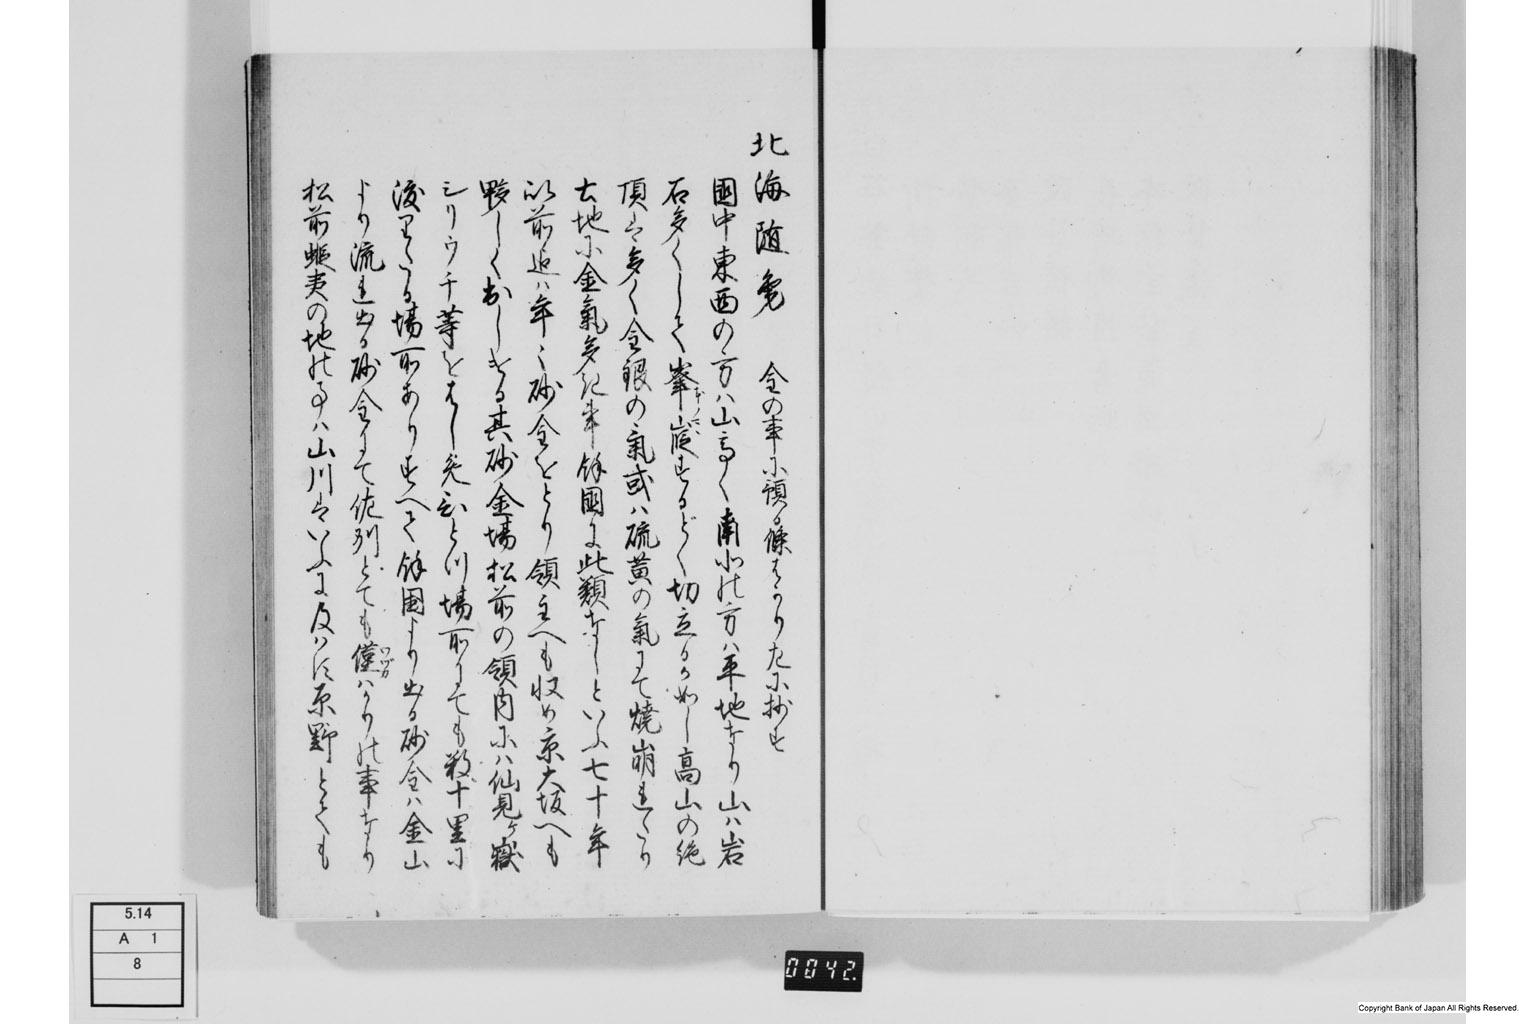 北海随筆　金の事に預る條はかり左に抄す
國中東西の方ハ山高く南北の方ハ平地なり山ハ岩
石多くして峯嶷するどく切立るか如し高山の絶
頂は多く金銀の氣或ハ硫黄の氣にて燒崩れたり
土地に金氣多き事餘國に此類なしといふ七十年
以前迄ハ年々砂金をとり領主へも収め京大坂へも
夥しく出しける其砂金場松前の領内にハ仙見ヶ嶽
シリウチ等をはし免ひとつ場所にても数十里に
渡りたる場所ありすへて餘国より出る砂金ハ金山
より流れ出る砂金にて佐州とても僅ハかりの事なり
松前蝦夷の地の事ハ山川はいふに及ハす原野とても
5.14
A 1
8
0042.
Copyright Bank of Japan All Rights Reserved.